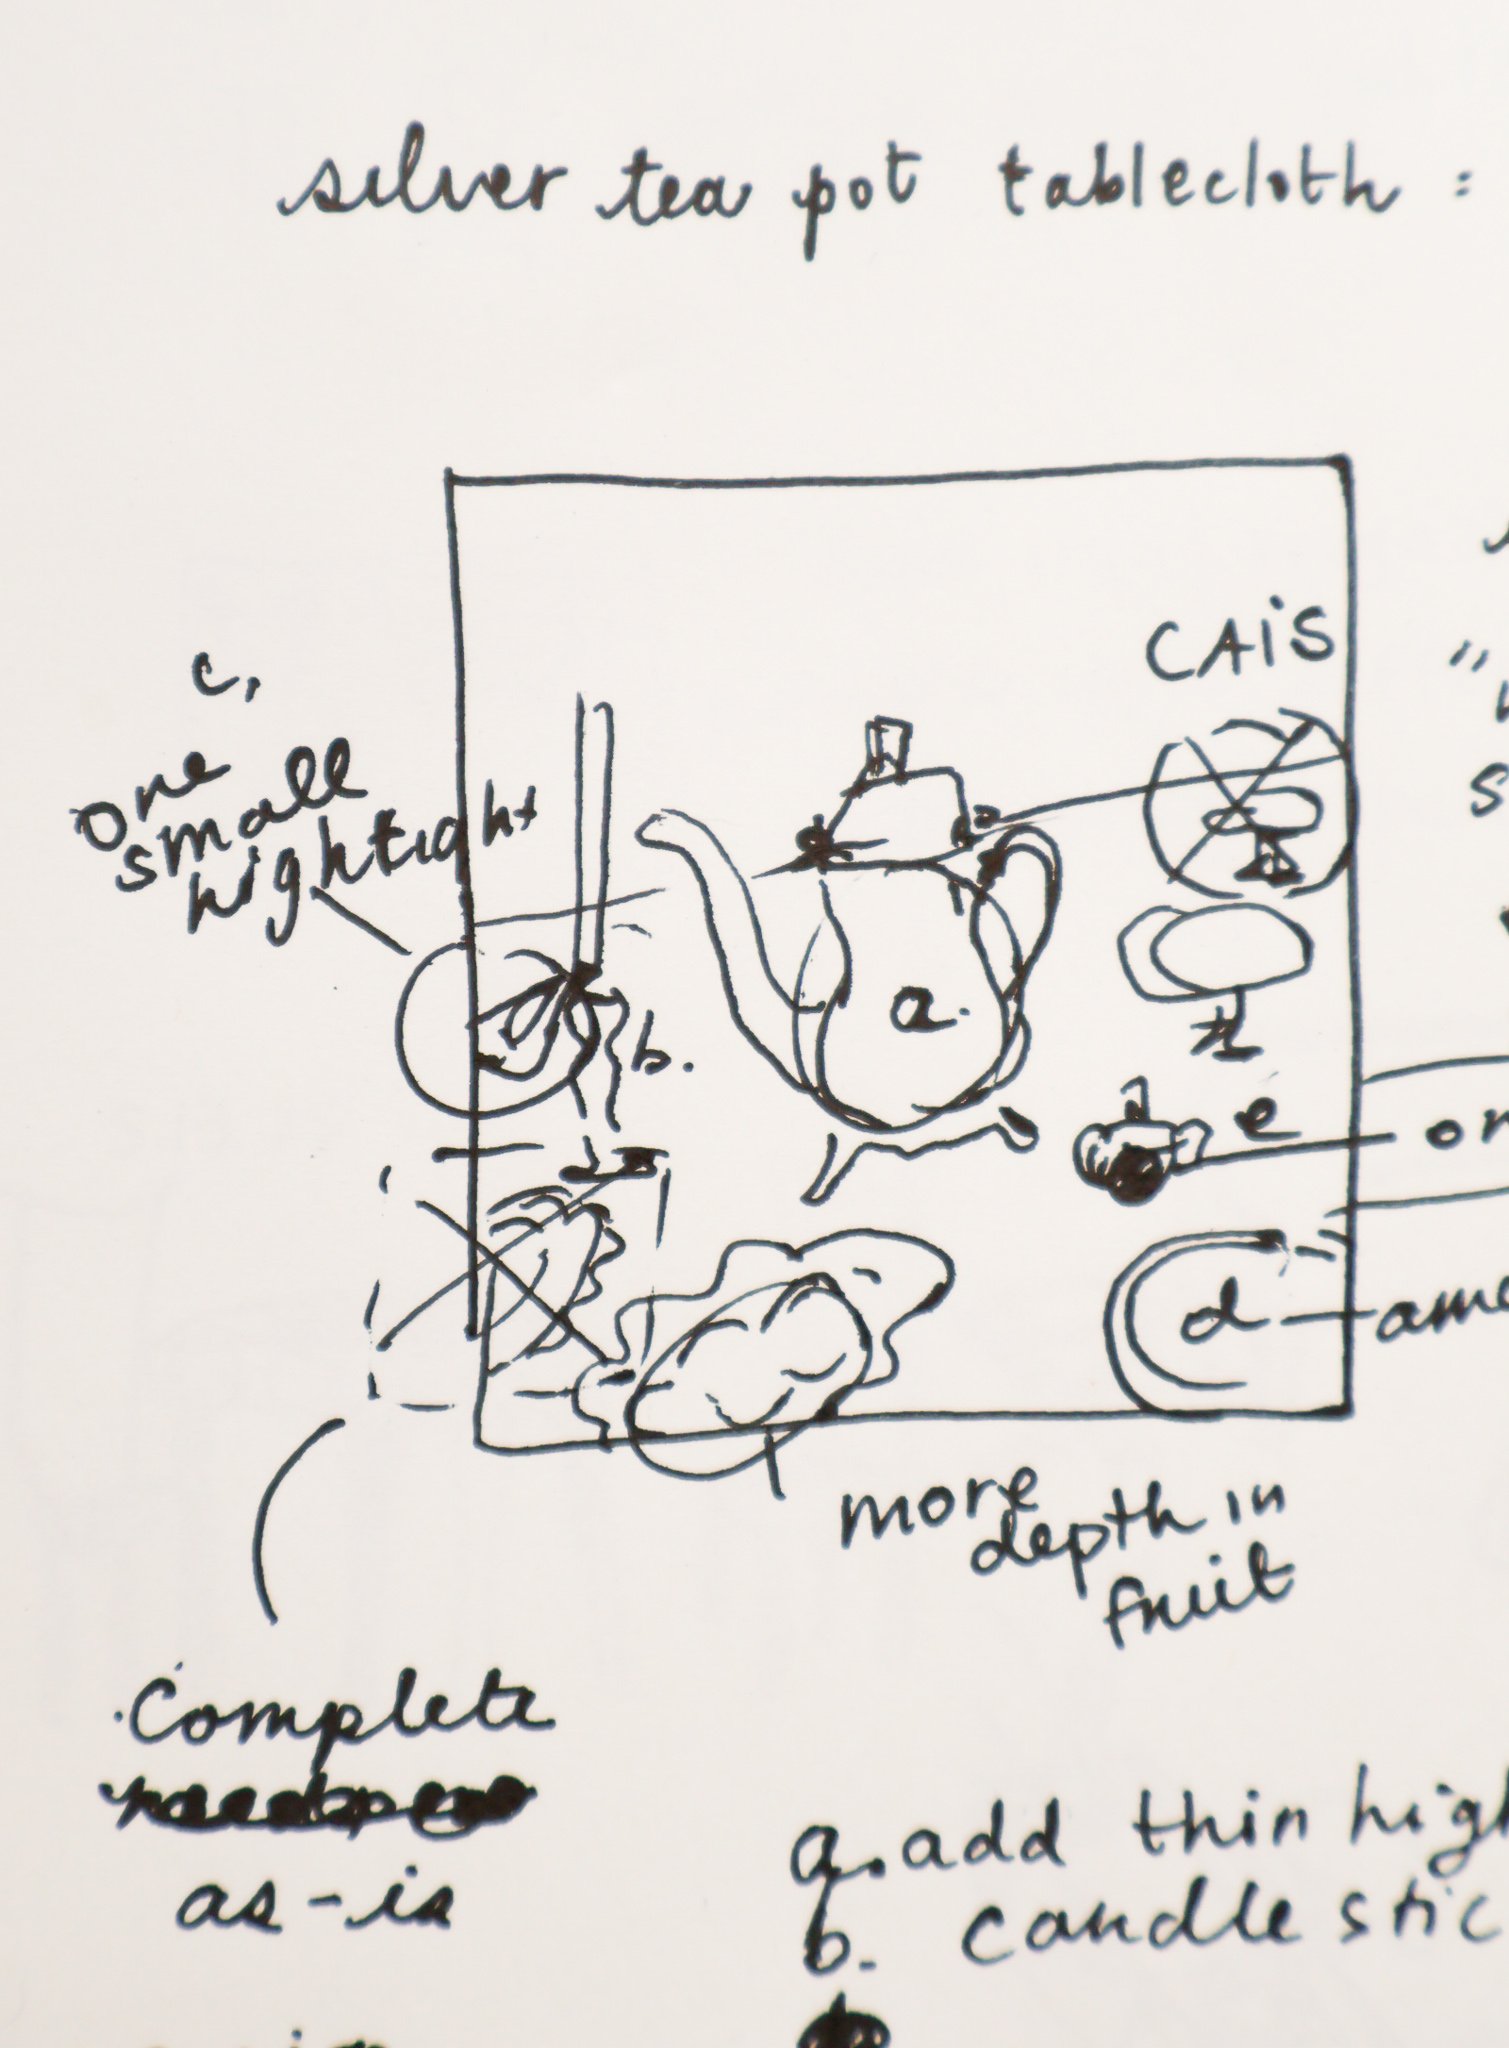 silver tea pot tablecloth =
CAiS
c.
one
small
hightight
a.
b.
e
d
ame
more
depth in
fruit
Complete
as-is
a. add thin high
b. candle stic